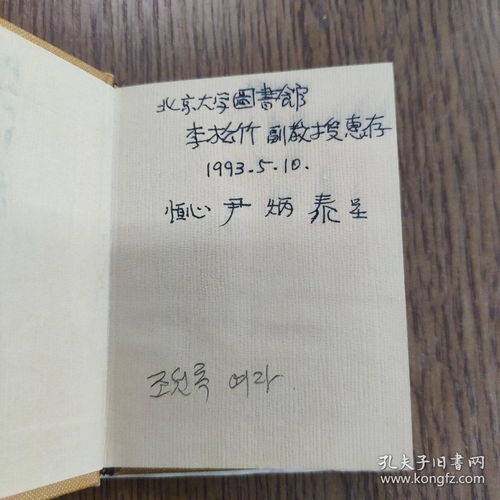 北京大学圖書館
李松竹 副教授惠存
1993.5.10.
恒心 尹炳泰 呈
조선족 여라
孔夫子旧书网
kongfz.com